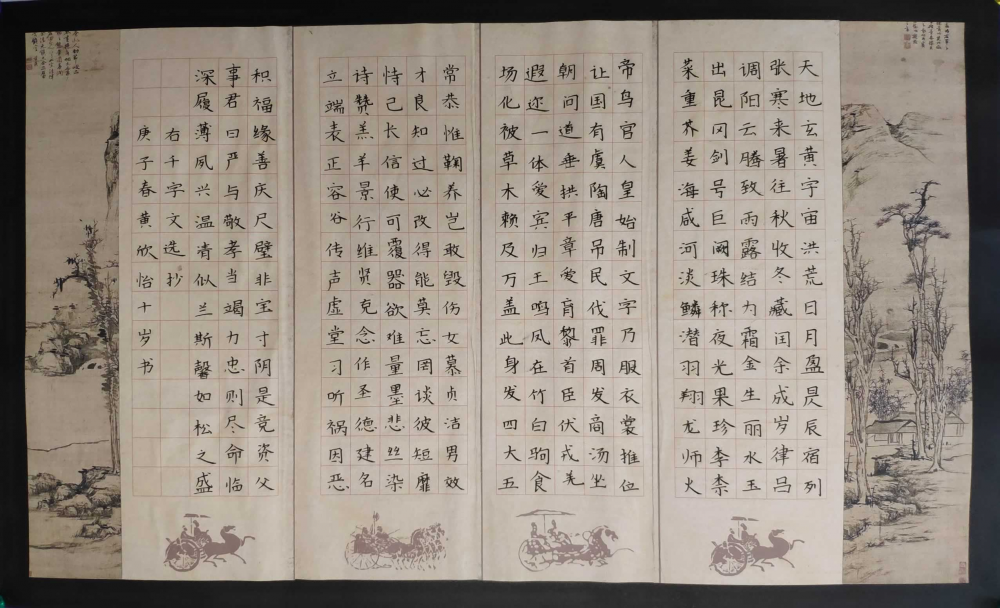 天地玄黄宇宙洪荒日月盈昃辰宿列
张寒来暑往秋收冬藏闰余成岁律吕
调阳云腾致雨露结为霜金生丽水玉
出昆冈剑号巨阙珠称夜光果珍李柰
菜重芥姜海咸河淡鳞潜羽翔龙师火
帝鸟官人皇始制文字乃服衣裳推位
让国有虞陶唐吊民伐罪周发商汤坐
朝问道垂拱平章爱育黎首臣伏戎羌
遐迩一体爱宾归王鸣凤在竹白驹食
场化被草木赖及万盖此身发四大五
常恭惟鞠养岂敢毁伤女慕贞洁男效
才良知过必改得能莫忘罔谈彼短靡
恃己长信使可覆器欲难量墨悲丝染
诗赞羔羊景行维贤克念作圣德建名
立端表正容谷传声虚堂习听祸因恶
积福缘善庆尺璧非宝寸阴是竞资父
事君曰严与敬孝当竭力忠则尽命临
深履薄夙兴温凊似兰斯馨如松之盛
右千字文选抄
庚子春黄欣怡十岁书